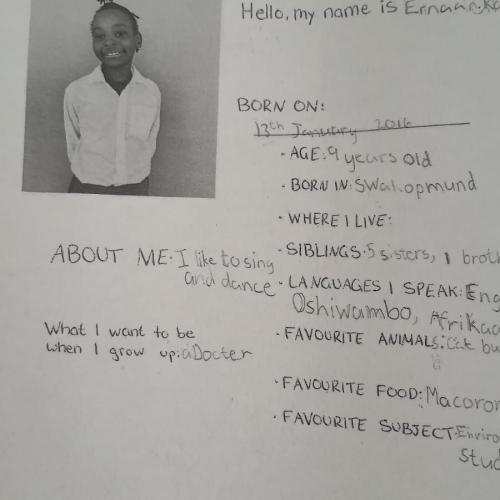 Hello, my name is
BORN ON:
13th January 2016
• AGE: 9 years old
• BORN IN: Swakopmund
• WHERE I LIVE:
• SIBLINGS: 5 sisters, 1 broth
ABOUT ME: I like to sing
and dance
• LANGUAGES I SPEAK: Eng
Oshiwambo, Afrikaa
What I want to be
when I grow up: a Docter
• FAVOURITE ANIMALS: Cat bu
• FAVOURITE FOOD: Macoron
• FAVOURITE SUBJECT: Enviro
Stud